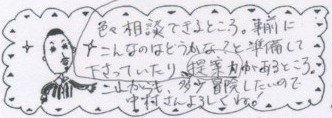 色々相談できるところ。事前に
こんなのはどうかな?と準備して
下さっていたり、提案力があるところ。
これからも、多少冒険したいので
中村さんよろしくね。